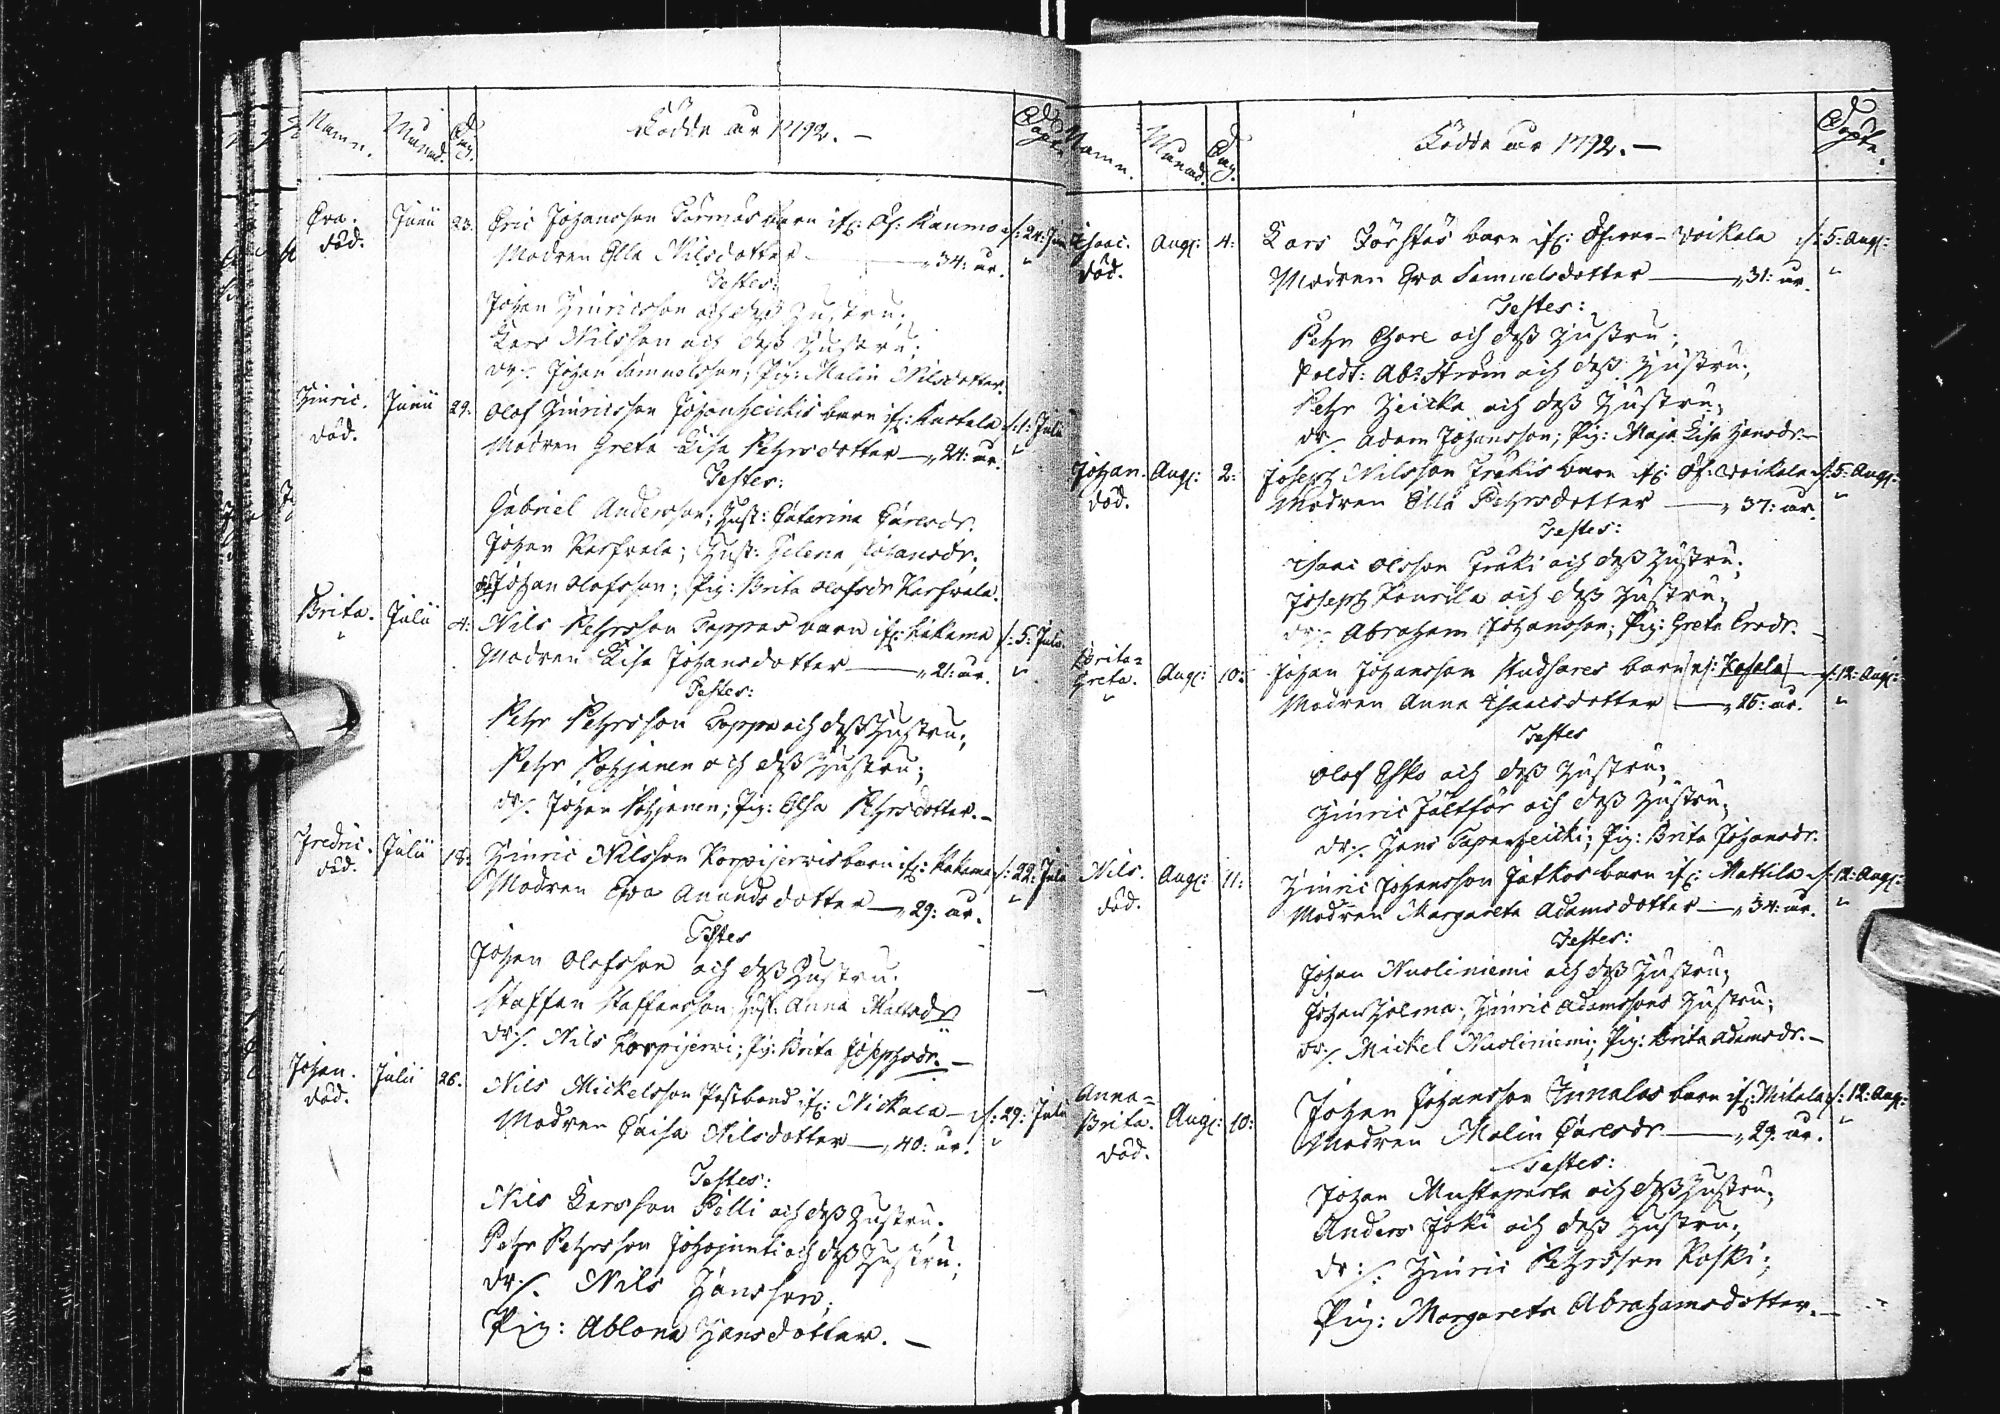 Namn. Månad. Dag. Födde år 1792. — Döpte
Eva. Junii 23. Eric Johansson Tormas barn ifr: Of: Raumo d: 24: Jun
död. Modren Ella Nilsdotter — 34: år.
Testes:
Johan Hinricsson och dess Hustru;
Lars Nilsson och dess Hustru;
dr:. Johan Samuelsson; Pig: Malin Nilsdotter.
Hinric. Junii 29. Olof Hinricsson Johanheickis barn ifr: Kurkala d: 1: Julii
död. Modren Greta Lisa Pehrsdotter — 24: år.
Testes:
Gabriel Andersson; Hust: Catarina Carlsdr.
Johan Karhvala; Hust: Helena Johansdr;
dr. Johan Olofsson; Pig: Brita Olofsdr Karhvala.
Brita. Julii 4: Nils Pehrsson Toppas barn ifr: Kakama d: 5: Julii
Modren Lisa Johansdotter — 21: år.
Testes:
Pehr Pehrsson Toppo och dess Hustru;
Pehr Pohjanen och dess Hustru;
dr:. Johan Pohjanen; Pig: Elsa Pehrsdotter. —
Fredric. Julii 18: Hinric Nilsson Korpijerwis barn ifr: Kakama d: 22: Julii
död. Modren Eva Anundsdotter — 29: år.
Testes
Johan Olofsson och dess Hustru;
Staffan Staffansson; Hust: Anna Mattsdr
dr:. Nils Korpijerwi; Pig: Brita Josephsdr. —
Johan. Julii 26. Nils Mickelsson Postbond ifr: Nickala — d: 29: Julii
död. Modren Caisa Nilsdotter — 40: år.
Testes:
Nils Larsson Pälli och dess Hustru;
Pehr Pehrsson och dess Hustru;
dr:. Nils Hansson;
Pig: Ablona Hansdotter. —
Namn. Månad. Dag. Födde år 1792. — Döpte.
Isaac. Aug: 4: Lars Förstös barn ifr: Voikala d: 5: Aug:
död. Modren Eva Samuelsdotter — 31: år.
Testes:
Pehr och dess Hustru;
Soldt: Abr Ström och dess Hustru;
Pehr Heicka och dess Hustru;
dr:. Adam Johansson; Pig: Maja Lisa Hansdr. —
Johan. Aug: 2: Joseph Nilsson Frakis barn ifr: Of: Voikala d: 5: Aug:
död. Modren Ella Pehrsdotter — 37: år.
Testes:
Isaac Olsson Fraki och dess Hustru;
Joseph Laurila och dess Hustru;
dr:. Abraham Johansson; Pig: Greta Ersdr. —
Brita=
Greta. Aug: 10: Johan Johansson Studsares barn d: 12: Aug:
Modren Anna Isaacsdotter — 25: år.
Testes
Olof Esko och dess Hustru;
Hinric Fältför och dess Hustru;
dr:. Hans Tapanheicki; Pig: Brita Johansdr.
Nils. Aug: 11: Hinric Johansson Jatkos barn ifr: Mattila d: 12: Aug:
död. Modren Margareta Adamsdotter — 34: år.
Testes:
Johan Nuoliniemi och dess Hustru;
Johan Holma; Hinric Adamssons Hustru;
dr:. Mickel Nuoliniemi; Pig: Brita Adamsdr. —
Anna=
Brita. Aug: 10: Johan Johansson Innalas barn ifr: d: 12: Aug:
död. Modren Malin Carlsdr — 29: år.
Testes:
Johan Mustaparta och dess Hustru;
Anders Joki och dess Hustru;
dr:. Hinric Pehrsson Koski;
Pig: Margareta Abrahamsdotter. —